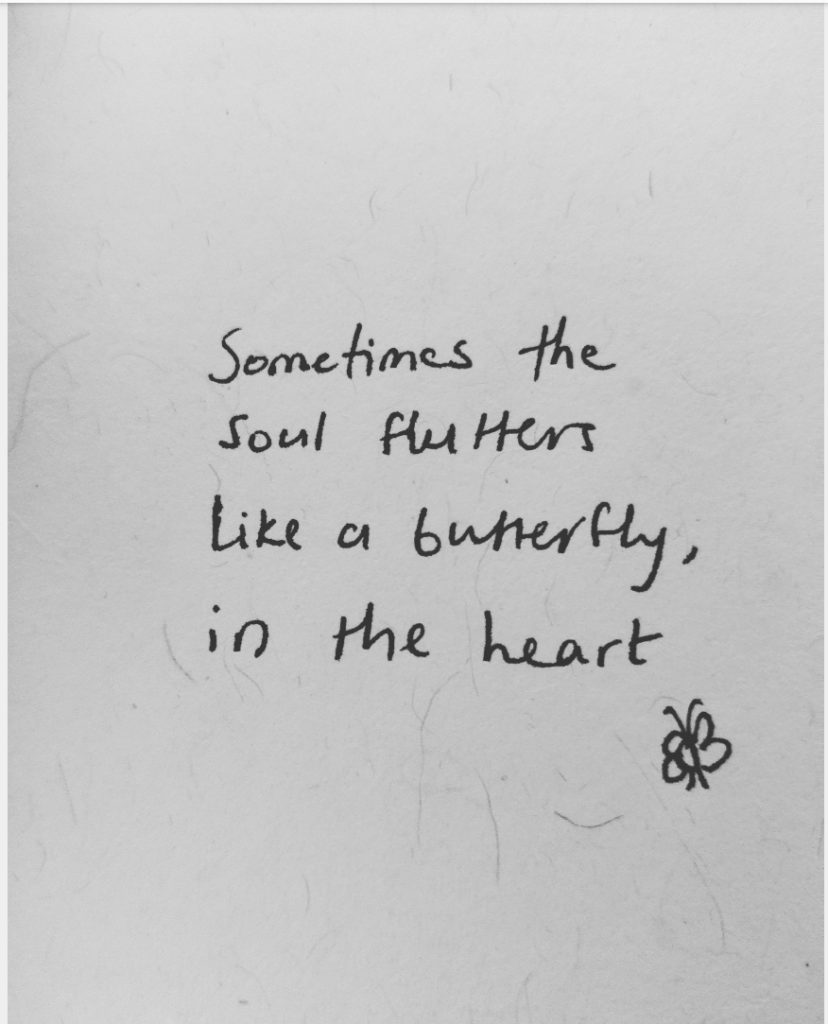 Sometimes the
soul flutters
like a butterfly,
in the heart